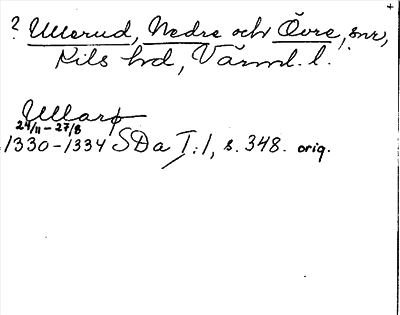 ? Ullerud, Nedre och Övre, snr,
Kils hd, Värml. l.
Ullarp
24/11 - 27/8
1330-1334 SDa I:1, s. 348. orig.